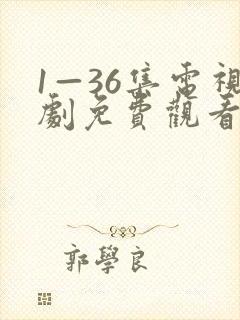 1—36集電視
劇免費觀看
郭學良